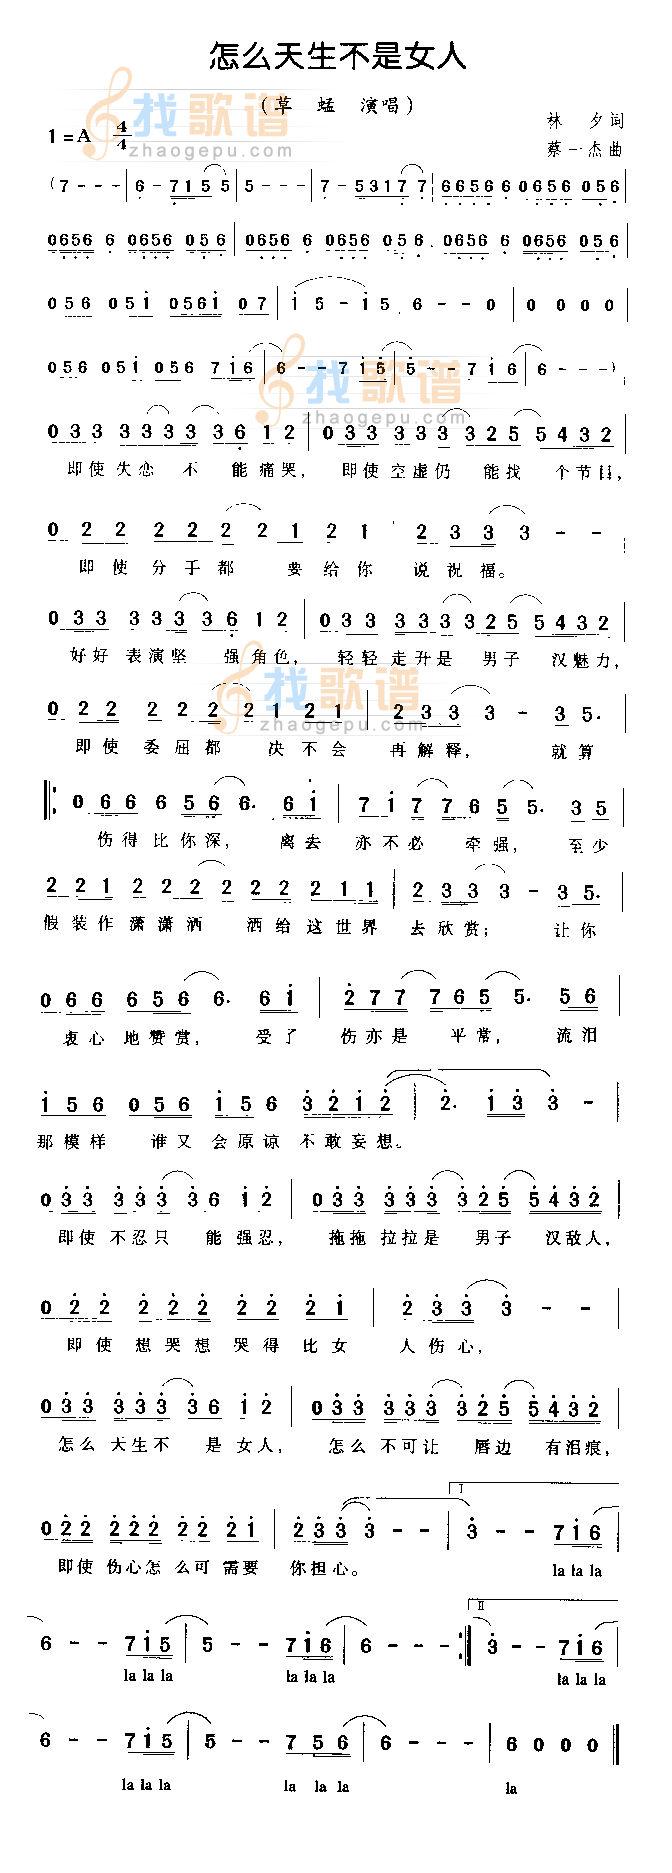 怎么天生不是女人
(草 蜢 演唱)
1=A 4/4
林 夕 词
蔡一杰 曲
找歌谱
zhaogepu.com
(7 - - - | 6 - 7 1 5 5 | 5 - - - | 7 - 5 3 1 7 7 | 6 6 5 6 6 0 6 5 6 0 5 6
0 6 5 6 6 0 6 5 6 0 5 6 | 0 6 5 6 6 0 6 5 6 0 5 6 . 0 6 5 6 6 0 6 5 6 0 5 6 |
0 5 6 0 5 1 0 5 6 1 0 7 | 1 5 - 1 5 6 - - 0 | 0 0 0 0 |
0 5 6 0 5 1 0 5 6 7 1 6 | 6 - - 7 1 5 | 5 - - 7 1 6 | 6 - - - )
找歌谱
zhaogepu.com
0 3 3 3 3 3 3 3 6 1 2 | 0 3 3 3 3 3 3 3 2 5 5 4 3 2 |
即使失恋 不 能痛哭, 即使空虚仍 能找 个节目,
0 2 2 2 2 2 2 2 1 2 1 2 3 3 3 - -
即使分手都 要给你 说祝福。
0 3 3 3 3 3 3 3 6 1 2 | 0 3 3 3 3 3 3 3 2 5 5 4 3 2 |
好好表演坚 强角色, 轻轻走升是 男子 汉魅力,
找歌谱
zhaogepu.com
0 2 2 2 2 2 2 2 1 2 1 | 2 3 3 3 - 3 5.
即使委屈都 决不会 再解释, 就算
0 6 6 6 5 6 6. 6 1 | 7 1 7 7 6 5 5. 3 5
伤得比你深, 离去 亦不必 牵强, 至少
2 2 1 2 2 2 2 2 2 2 1 1 | 2 3 3 3 - 3 5.
假装作潇潇洒 洒给这世界 去欣赏; 让你
0 6 6 6 5 6 6. 6 1 | 2 7 7 7 6 5 5. 5 6
衷心地赞赏, 受了 伤亦是 平常, 流泪
1 5 6 0 5 6 1 5 6 3 2 1 2 | 2. 1 3 3 -
那模样 谁又会原谅 不敢妄想。
0 3 3 3 3 3 3 3 6 1 2 | 0 3 3 3 3 3 3 3 2 5 5 4 3 2 |
即使不忍只 能强忍, 拖拖拉拉是 男子 汉敌人,
0 2 2 2 2 2 2 2 2 2 1 | 2 3 3 3 - - |
即使想哭想 哭得比女 人伤心,
0 3 3 3 3 3 3 3 6 1 2 | 0 3 3 3 3 3 3 3 2 5 5 4 3 2 |
怎么天生不 是女人, 怎么不可让 唇边 有泪痕,
I
0 2 2 2 2 2 2 2 2 1 | 2 3 3 3 - - | 3 - - 7 1 6
即使伤心怎么可需要 你担心。 la la la
II
6 - - 7 1 5 | 5 - - 7 1 6 | 6 - - :| 3 - - 7 1 6
la la la la la la la la la
6 - - 7 1 5 | 5 - - 7 5 6 | 6 - - - | 6 0 0 0 ||
la la la la la la la